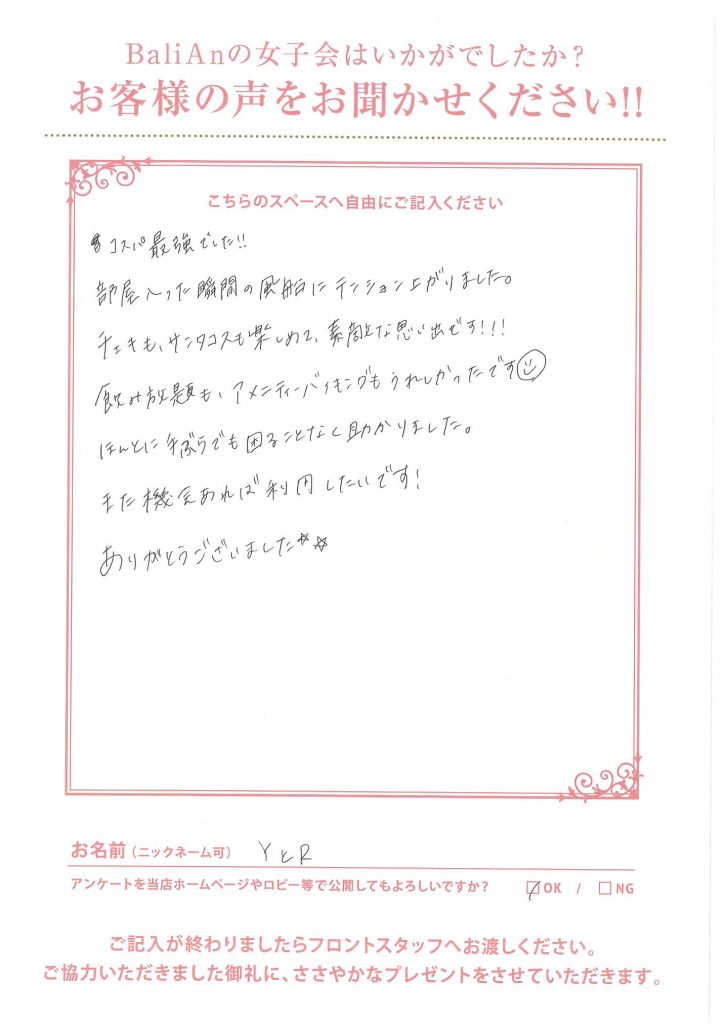 BaliAnの女子会はいかがでしたか?
お客様の声をお聞かせください!!
こちらのスペースへ自由にご記入ください
コスパ最強でした!!
部屋入った瞬間の風船にテンション上がりました。
チェキも、サンタコスも楽しめて、素敵な思い出です!!!
飲み放題も、アメニティーバイキングもうれしかったです☺
ほんとに手ぶらでも困ることなく助かりました。
また機会あれば利用したいです!
ありがとうございました☆☆
お名前(ニックネーム可) YとR
アンケートを当店ホームページやロビー等で公開してもよろしいですか? ☑OK / □NG
ご記入が終わりましたらフロントスタッフへお渡しください。
ご協力いただきました御礼に、ささやかなプレゼントをさせていただきます。